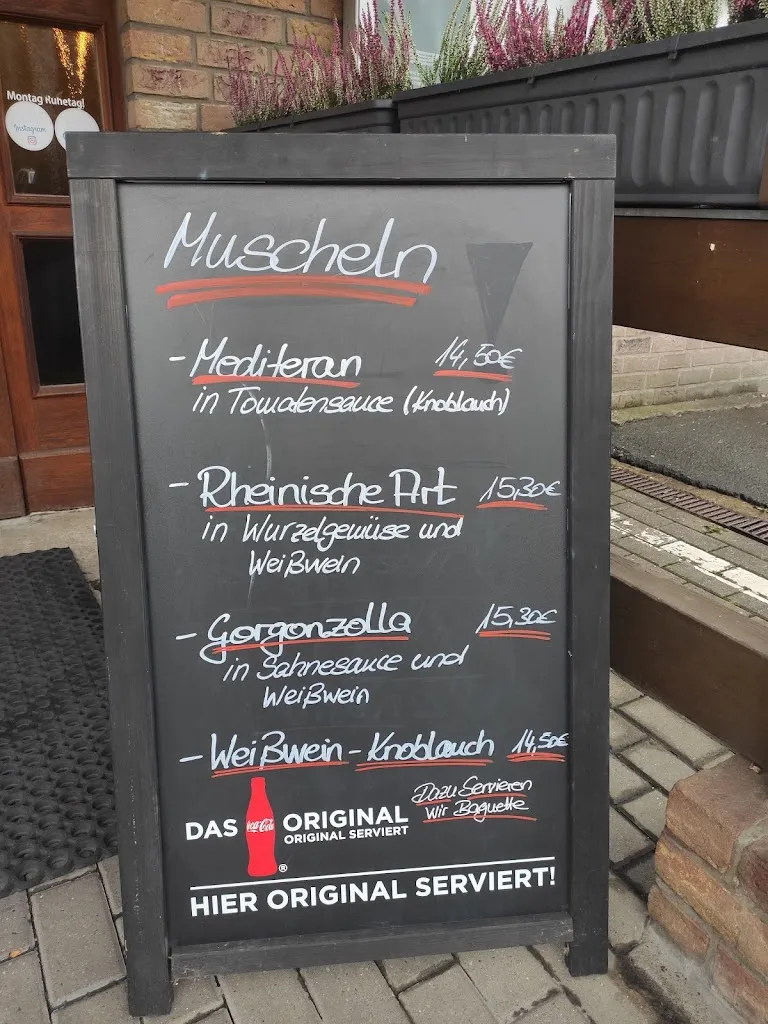 Montag Ruhetag!
Instagram
Muscheln
- Mediteran 14,50€
in Tomatensauce (Knoblauch)
- Rheinische Art 15,30€
in Wurzelgemüse und
Weißwein
- Gorgonzolla 15,30€
in Sahnesauce und
Weißwein
- Weißwein - Knoblauch 14,50€
Dazu Servieren
Wir Baguette
DAS Coca-Cola ORIGINAL
ORIGINAL SERVIERT
®
HIER ORIGINAL SERVIERT!